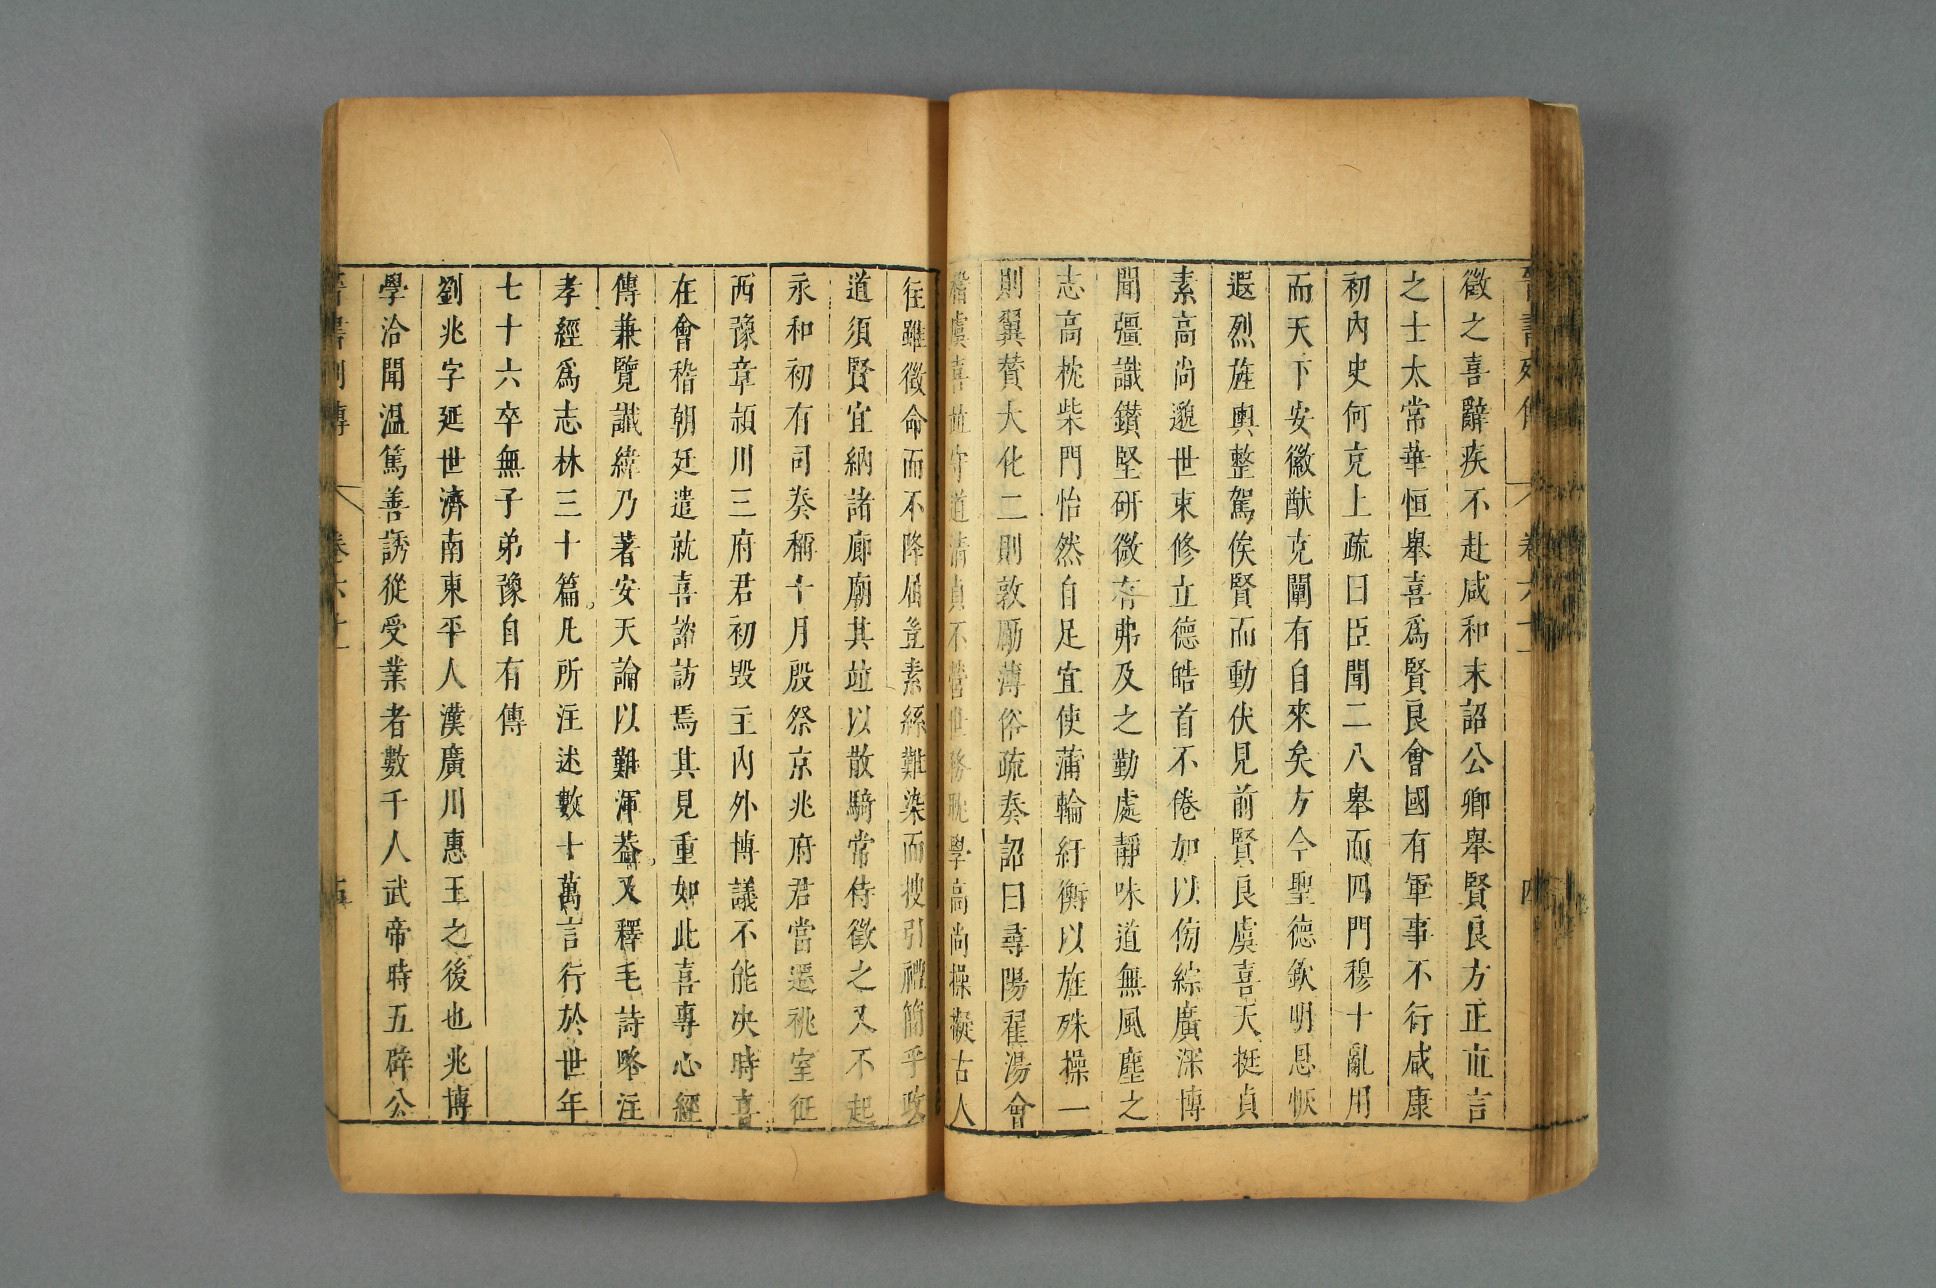 徵之喜辭疾不赴咸和末詔公卿舉賢良方正直言
之士太常華恒舉喜爲賢良會國有軍事不行咸康
初內史何充上疏曰臣聞二八舉而四門穆十亂用
而天下安徽猷克闡有自來矣方今聖德欽明思恢
遐烈旌輿整駕俟賢而動伏見前賢良虞喜天挺貞
素高尚邈世束修立德皓首不倦加以傍綜廣深博
聞彊識鑚堅研微有弗及之勤處靜味道無風塵之
志高枕柴門怡然自足宜使蒲輪紆衡以旌殊操一
則翼贊大化二則敦勵薄俗疏奏詔曰尋陽翟湯會
稽虞喜並守道清貞不營世務耽學高尚操擬古人
往雖徵命而不降屈豈素絲難染而搜引禮簡乎政
道須賢宜納諸廊廟其並以散騎常侍徵之又不起
永和初有司奏稱十月殷祭京兆府君當遷祧室征
西豫章潁川三府君初毀主內外博議不能決時喜
在會稽朝廷遣就喜諮訪焉其見重如此喜專心經
傳兼覽讖緯乃著安天論以難渾葢。又釋毛詩略注
孝經爲志林三十篇。凡所注述數十萬言行於世年
七十六卒無子弟豫自有傳
劉兆字延世濟南東平人漢廣川惠王之後也兆博
學洽聞溫篤善誘從受業者數千人武帝時五辟公
晉書列傳 卷六十一 五